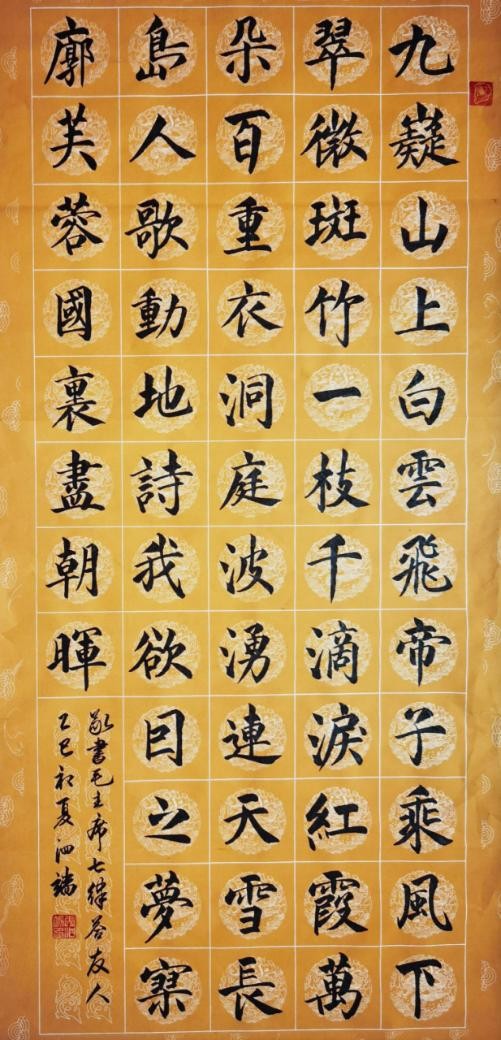 九嶷山上白雲飛帝子乘風下
翠微斑竹一枝千滴淚紅霞萬
朵百重衣洞庭波湧連天雪長
島人歌動地詩我欲囙之夢寥
廓芙蓉國裏盡朝暉
敬書毛主席七律答友人
乙巳初夏泗端